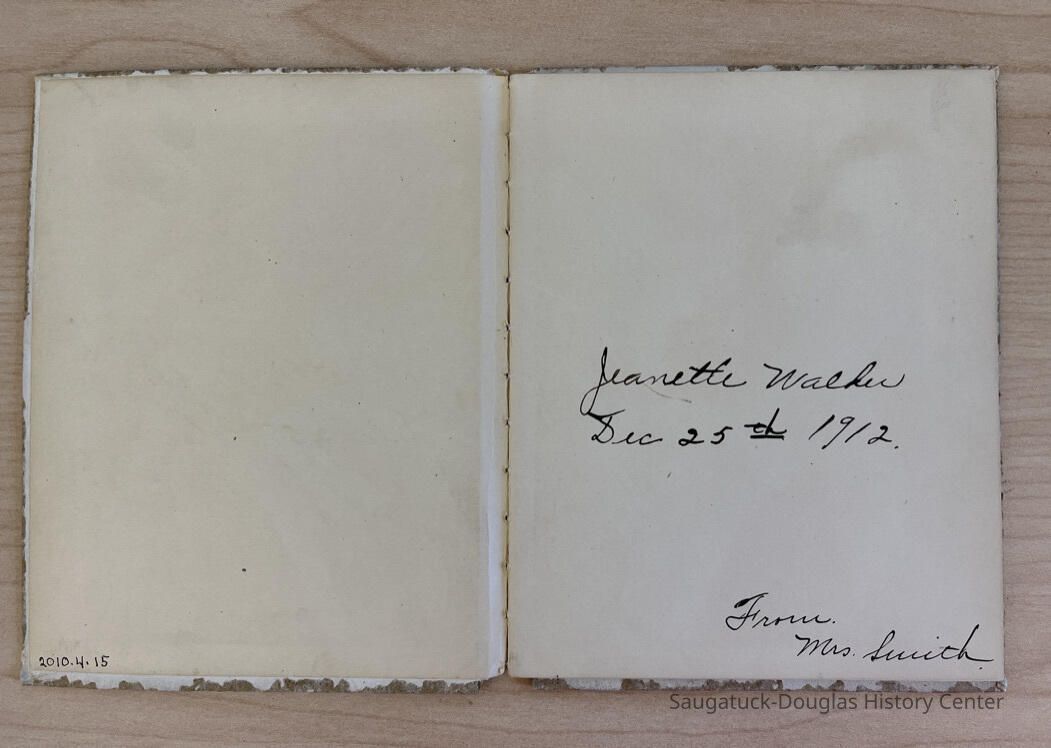 2010.4.15
Jeanette Walker
Dec 25th 1912.
From.
Mrs. Smith.
Saugatuck-Douglas History Center